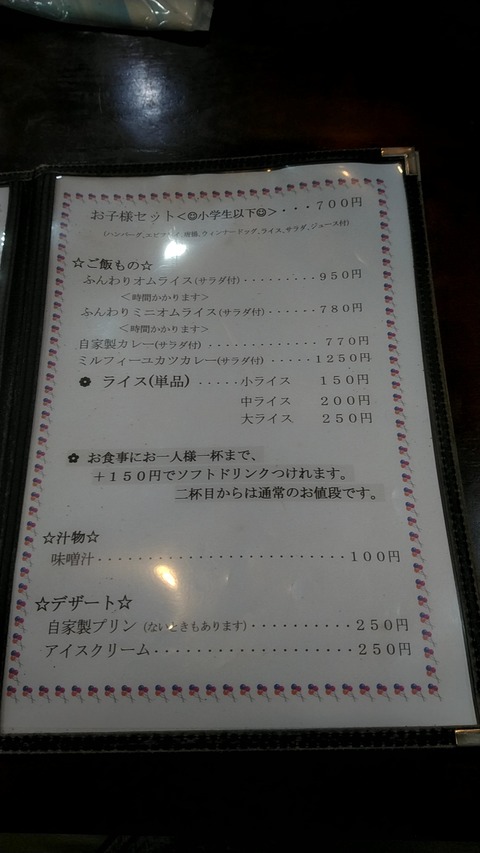 お子様セット<☺小学生以下☺>・・・700円
(ハンバーグ、エビフライ、唐揚、ウィンナードッグ、ライス、サラダ、ジュース付)
☆ご飯もの☆
ふんわりオムライス(サラダ付)・・・・・・・・・950円
<時間かかります>
ふんわりミニオムライス(サラダ付)・・・・・・・780円
<時間かかります>
自家製カレー(サラダ付)・・・・・・・・・・・・・770円
ミルフィーユカツカレー(サラダ付)・・・・1250円
✿ ライス(単品)・・・・・小ライス 150円
中ライス 200円
大ライス 250円
✿ お食事にお一人様一杯まで、
+150円でソフトドリンクつけれます。
二杯目からは通常のお値段です。
☆汁物☆
味噌汁・・・・・・・・・・・・・・・・・・・・・・・・100円
☆デザート☆
自家製プリン(ないときもあります)・・・・・・・・・・250円
アイスクリーム・・・・・・・・・・・・・・・・・・・250円